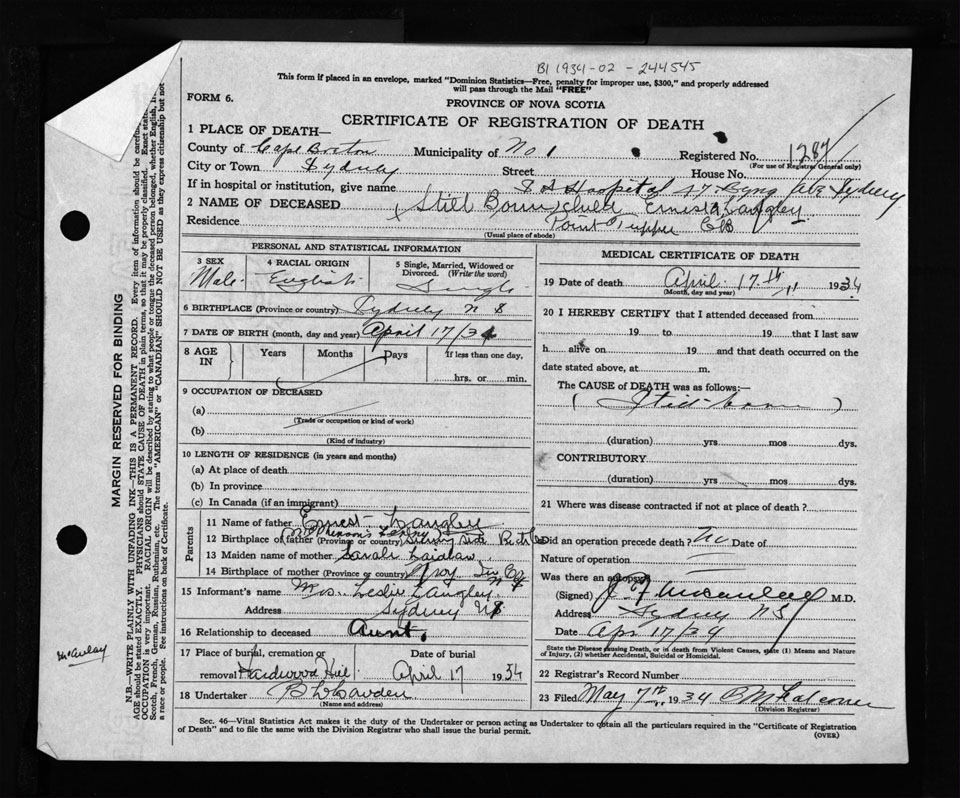 BI 1934-02-244545
This form if placed in an envelope, marked "Dominion Statistics—Free, penalty for improper use, $300," and properly addressed
will pass through the Mail "FREE"
FORM 6.
PROVINCE OF NOVA SCOTIA
CERTIFICATE OF REGISTRATION OF DEATH
1 PLACE OF DEATH—
County of Cape Breton Municipality of No 1 Registered No. 1287
(For use of Registrar General only)
City or Town Sydney Street House No.
If in hospital or institution, give name Hospital 17 Byng Ave Sydney
2 NAME OF DECEASED (Still Born child Ernest Langley)
Residence Point Tupper CB
(Usual place of abode)
PERSONAL AND STATISTICAL INFORMATION
3 SEX 4 RACIAL ORIGIN 5 Single, Married, Widowed or Divorced. (Write the word)
Male English Single
6 BIRTHPLACE (Province or country) Sydney N S
7 DATE OF BIRTH (month, day and year) April 17/34
8 AGE IN Years Months Days If less than one day,
hrs. or min.
9 OCCUPATION OF DECEASED
(a)
(Trade or occupation or kind of work)
(b)
(Kind of industry)
10 LENGTH OF RESIDENCE (in years and months)
(a) At place of death
(b) In province
(c) In Canada (if an immigrant)
Parents
11 Name of father Ernest Langley
12 Birthplace of father (Province or country) McPherson's Ferry
13 Maiden name of mother Sarah Laidlaw
14 Birthplace of mother (Province or country) Troy Inv Co N S
15 Informant's name Mrs. Leslie Langley
Address Sydney NS
16 Relationship to deceased Aunt.
17 Place of burial, cremation or Date of burial
removal Hardwood Hill April 17 1934
18 Undertaker
(Name and address)
MEDICAL CERTIFICATE OF DEATH
19 Date of death April 17th 1934
(Month, day and year)
20 I HEREBY CERTIFY that I attended deceased from
19 to 19 that I last saw
h alive on 19 and that death occurred on the
date stated above, at m.
The CAUSE of DEATH was as follows:—
(Still-born)
(duration) yrs mos dys.
CONTRIBUTORY
(duration) yrs mos dys.
21 Where was disease contracted if not at place of death?
Did an operation precede death? No Date of
Nature of operation
Was there an autopsy
(Signed) McAulay M.D.
Address Sydney NS
Date Apr 17/34
State the Disease causing Death, or in death from Violent Causes, state (1) Means and Nature
of Injury, (2) whether Accidental, Suicidal or Homicidal.
22 Registrar's Record Number
23 Filed May 7th 1934
(Division Registrar)
Sec. 46—Vital Statistics Act makes it the duty of the Undertaker or person acting as Undertaker to obtain all the particulars required in the "Certificate of Registration
of Death" and to file the same with the Division Registrar who shall issue the burial permit.
(OVER)
MARGIN RESERVED FOR BINDING
N.B.—WRITE PLAINLY WITH UNFADING INK—THIS IS A PERMANENT RECORD. Every item of information should be
AGE should be stated EXACTLY. PHYSICIANS should STATE CAUSE OF DEATH in plain terms, so that it may be properly classified. Exact
OCCUPATION is very important. RACIAL ORIGIN will be described by stating to what people or tongue the deceased person belonged, whether English,
Scotch, French, German, Russian, Ruthenian, etc. The terms "AMERICAN" or "CANADIAN" SHOULD NOT BE USED as they express citizenship but not
a race or people. See instructions on back of Certificate.
McAulay